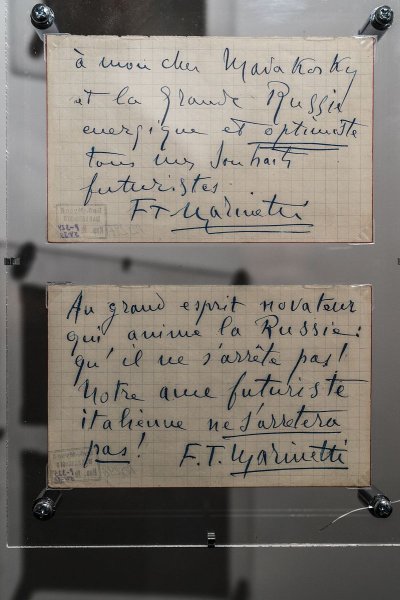 à mon cher Maiakosky
et la Grande Russie
energique et optimiste
tous mes souhaits
futuristes
F T Marinetti
Au grand esprit novateur
qui anime la Russie:
qu'il ne s'arrête pas!
Notre ame futuriste
italienne ne s'arretera
pas! F.T. Marinetti